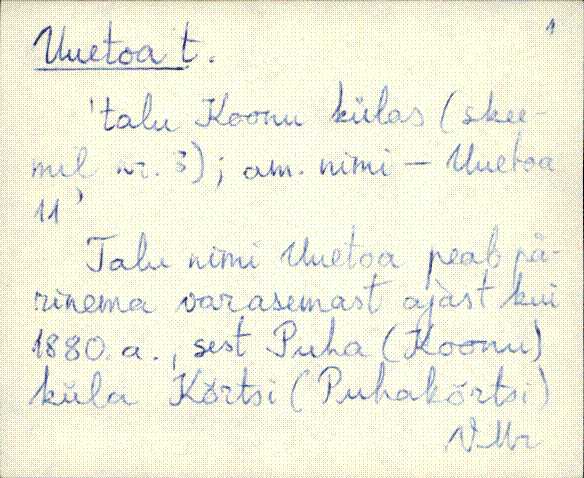 1
Uuetoa t.
'talu Koonu külas (skee-
mil nr. 3); am. nimi - Uuetoa
11'
Talu nimi Uuetoa peab pä-
rinema varasemast ajast kui
1880. a., sest Puha (Koonu)
küla Kõrtsi (Puhakõrtsi)